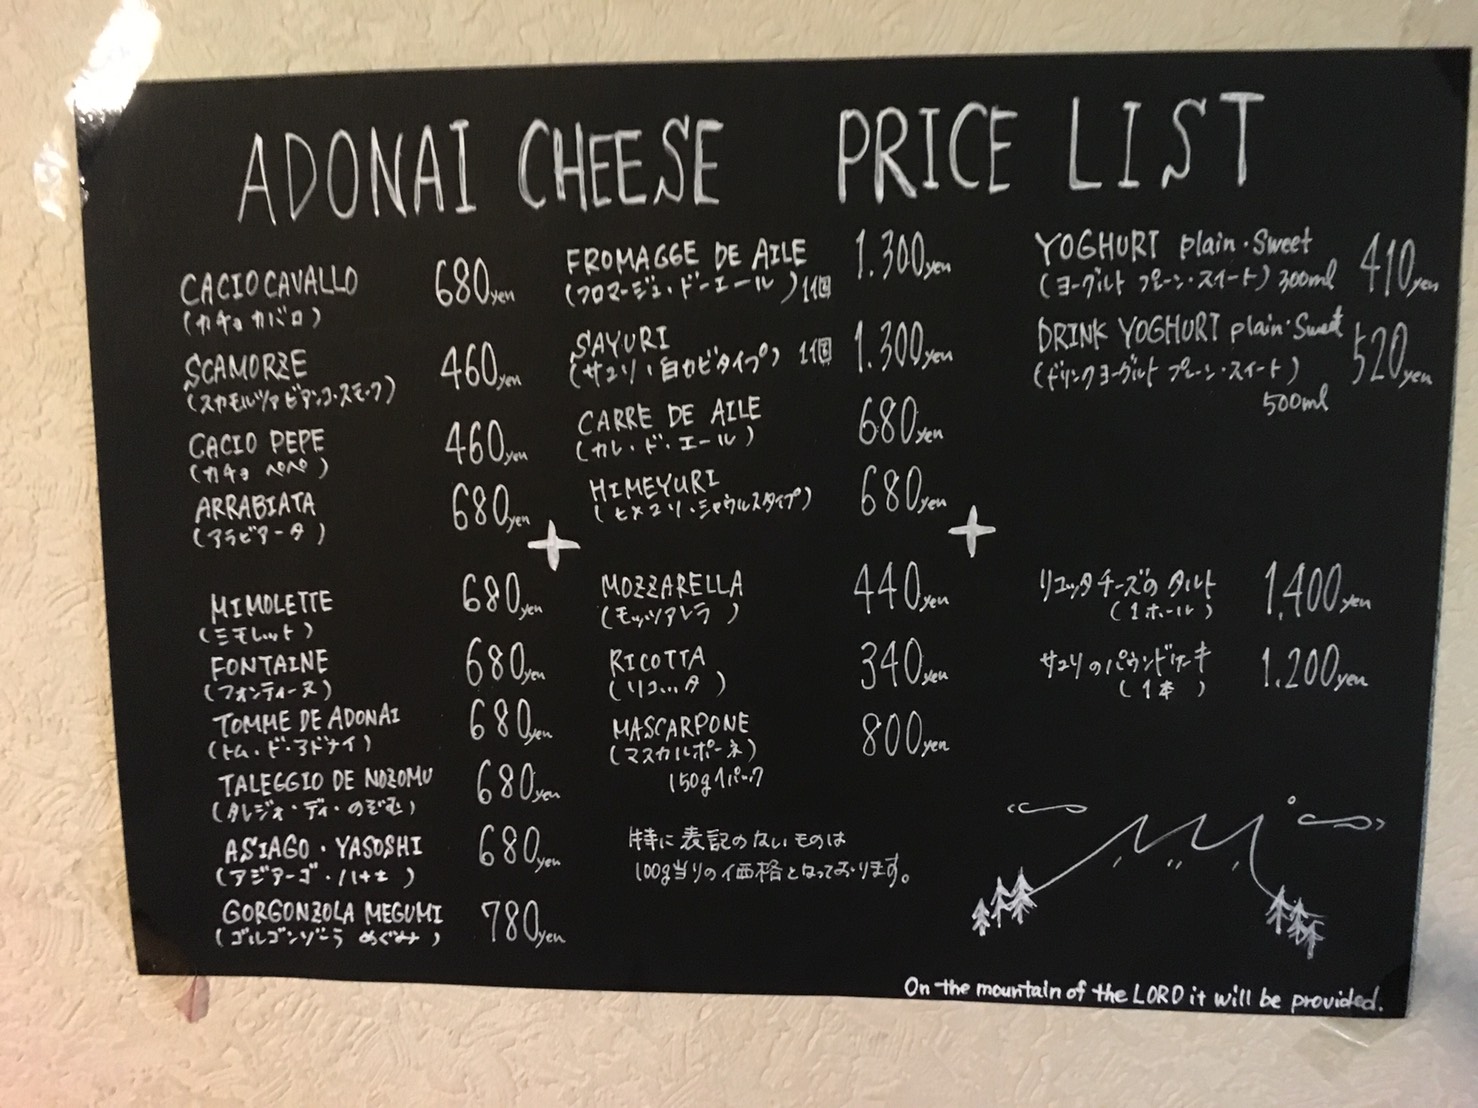 ADONAI CHEESE PRICE LIST
CACIOCAVALLO 680yen
(カチョカバロ)
SCAMORZE 460yen
(スカモルツァ ビアンコ・スモーク)
CACIO PEPE 460yen
(カチョ ペペ)
ARRABIATA 680yen
(アラビアータ)
MIMOLETTE 680yen
(ミモレット)
FONTAINE 680yen
(フォンティーヌ)
TOMME DE ADONAI 680yen
(トム・ド・アドナイ)
TALEGGIO DE NOZOMU 680yen
(タレジオ・ディ・のぞむ)
ASIAGO・YASOSHI 680yen
(アジアーゴ・ハナモ)
GORGONZOLA MEGUMI 780yen
(ゴルゴンゾーラ めぐみ)
FROMAGGE DE AILE 1.300yen
(フロマージュ・ド・エール) 1個
SAYURI 1.300yen
(サユリ・白カビタイプ) 1個
CARRE DE AILE 680yen
(カレ・ド・エール)
HIMEYURI 680yen
(ヒメユリ・シャウルスタイプ)
MOZZARELLA 440yen
(モッツアレラ)
RICOTTA 340yen
(リコッタ)
MASCARPONE 800yen
(マスカルポーネ)
150g 1パック
特に表記のないものは
100g当りの価格となっております。
YOGHURT plain・Sweet 410yen
(ヨーグルト プレーン・スイート) 300ml
DRINK YOGHURT plain・Sweet 520yen
(ドリンクヨーグルト プレーン・スイート)
500ml
リコッタチーズのタルト 1,400yen
(1ホール)
サユリのパウンドケーキ 1.200yen
(1本)
On the mountain of the LORD it will be provided.